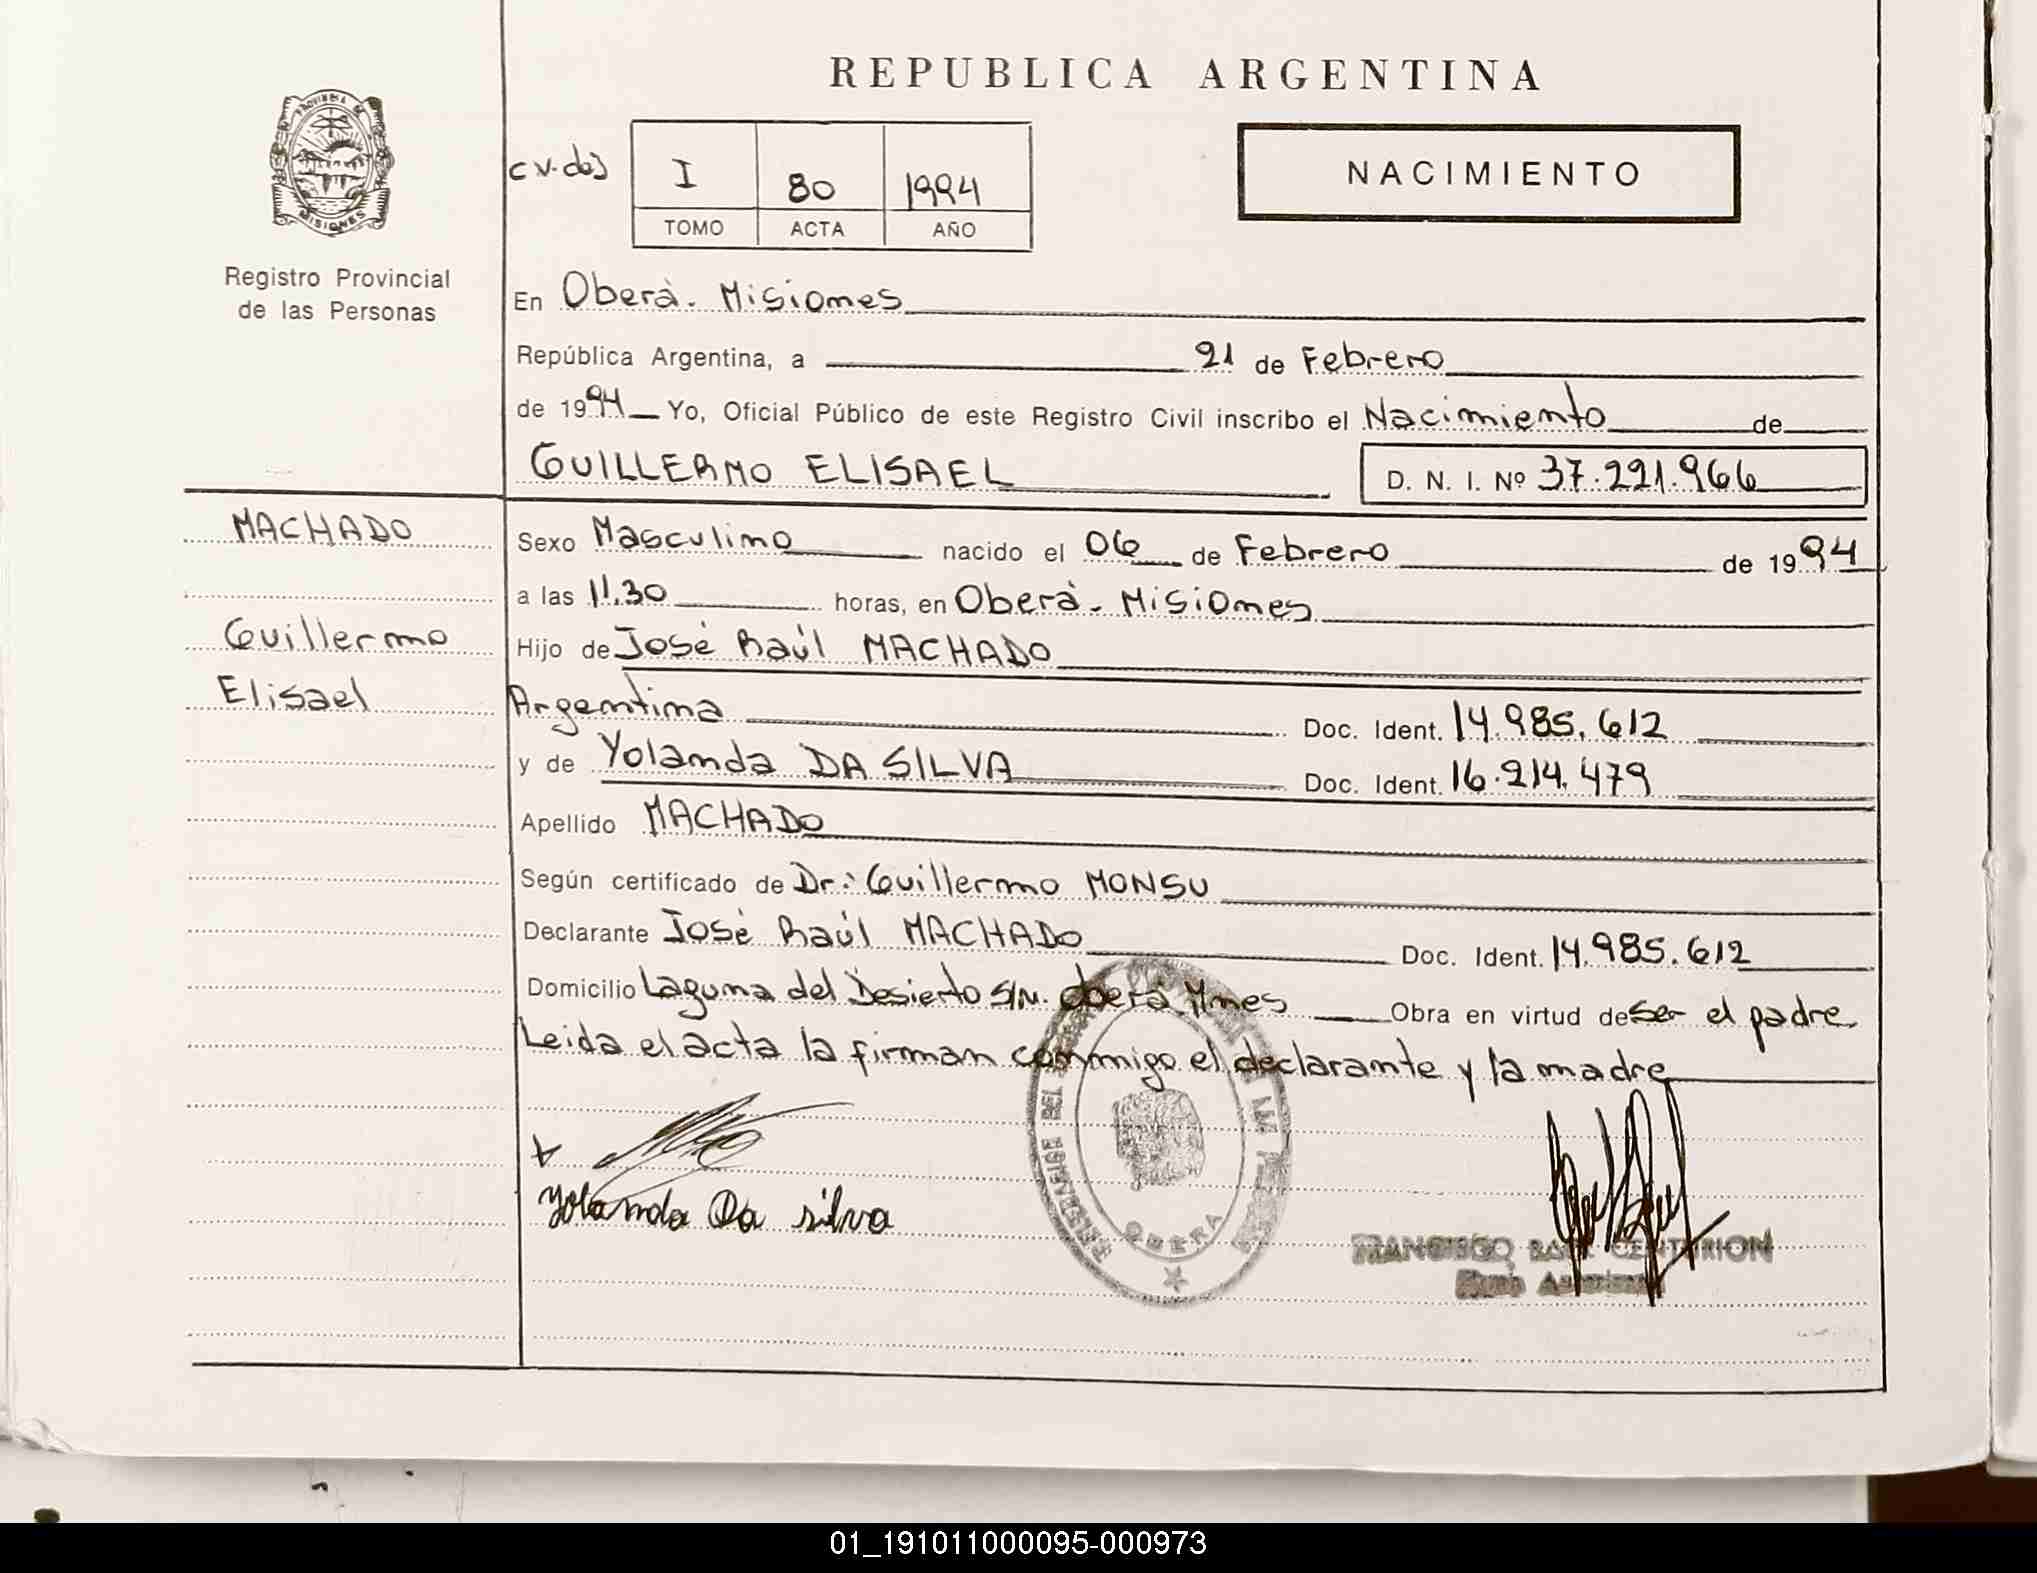 REPUBLICA ARGENTINA
PROVINCIA DE
MISIONES
Registro Provincial
de las Personas
I 80 1994
TOMO ACTA AÑO
NACIMIENTO
En Oberá - Misiones
República Argentina, a 21 de Febrero
de 1994 Yo, Oficial Público de este Registro Civil inscribo el Nacimiento de
GUILLERMO ELISAEL D. N. I. Nº 37.221.966
MACHADO
Guillermo
Elisael
Sexo Masculino nacido el 06 de Febrero de 1994
a las 11.30 horas, en Oberá - Misiones
Hijo de José Raúl MACHADO
Argentina Doc. Ident. 14.985.612
y de Yolanda DA SILVA Doc. Ident. 16.214.479
Apellido MACHADO
Según certificado de Dr: Guillermo MONSU
Declarante José Raúl MACHADO Doc. Ident. 14.985.612
Domicilio Laguna del Desierto S/N. Oberá Mnes Obra en virtud de ser el padre
Leida el acta la firman conmigo el declarante y la madre
Yolanda Da silva
OBERA
FRANCISCO CENTURION
01_191011000095-000973